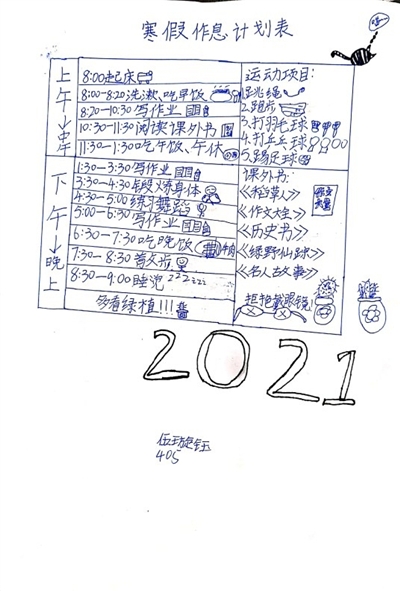 寒假作息计划表
上午→中午
8:00起床
8:00-8:20洗漱、吃早饭
8:20-10:30写作业
10:30-11:30阅读课外书
11:30-1:30吃午饭、午休
下午→晚上
1:30-3:30写作业
3:30-4:30锻炼身体
4:30-5:00练习舞蹈
5:00-6:30写作业
6:30-7:30吃晚饭
7:30-8:30散步
8:30-9:00睡觉zzzzzz
多看绿植!!!
运动项目:
1.跳绳
2.跑步
3.打羽毛球
4.打乒乓球
5.踢足球
课外书:
《稻草人》
《作文大全》
《历史书》
《绿野仙踪》
《名人故事》
拒绝戴眼镜!
2021
伍琁钰
405